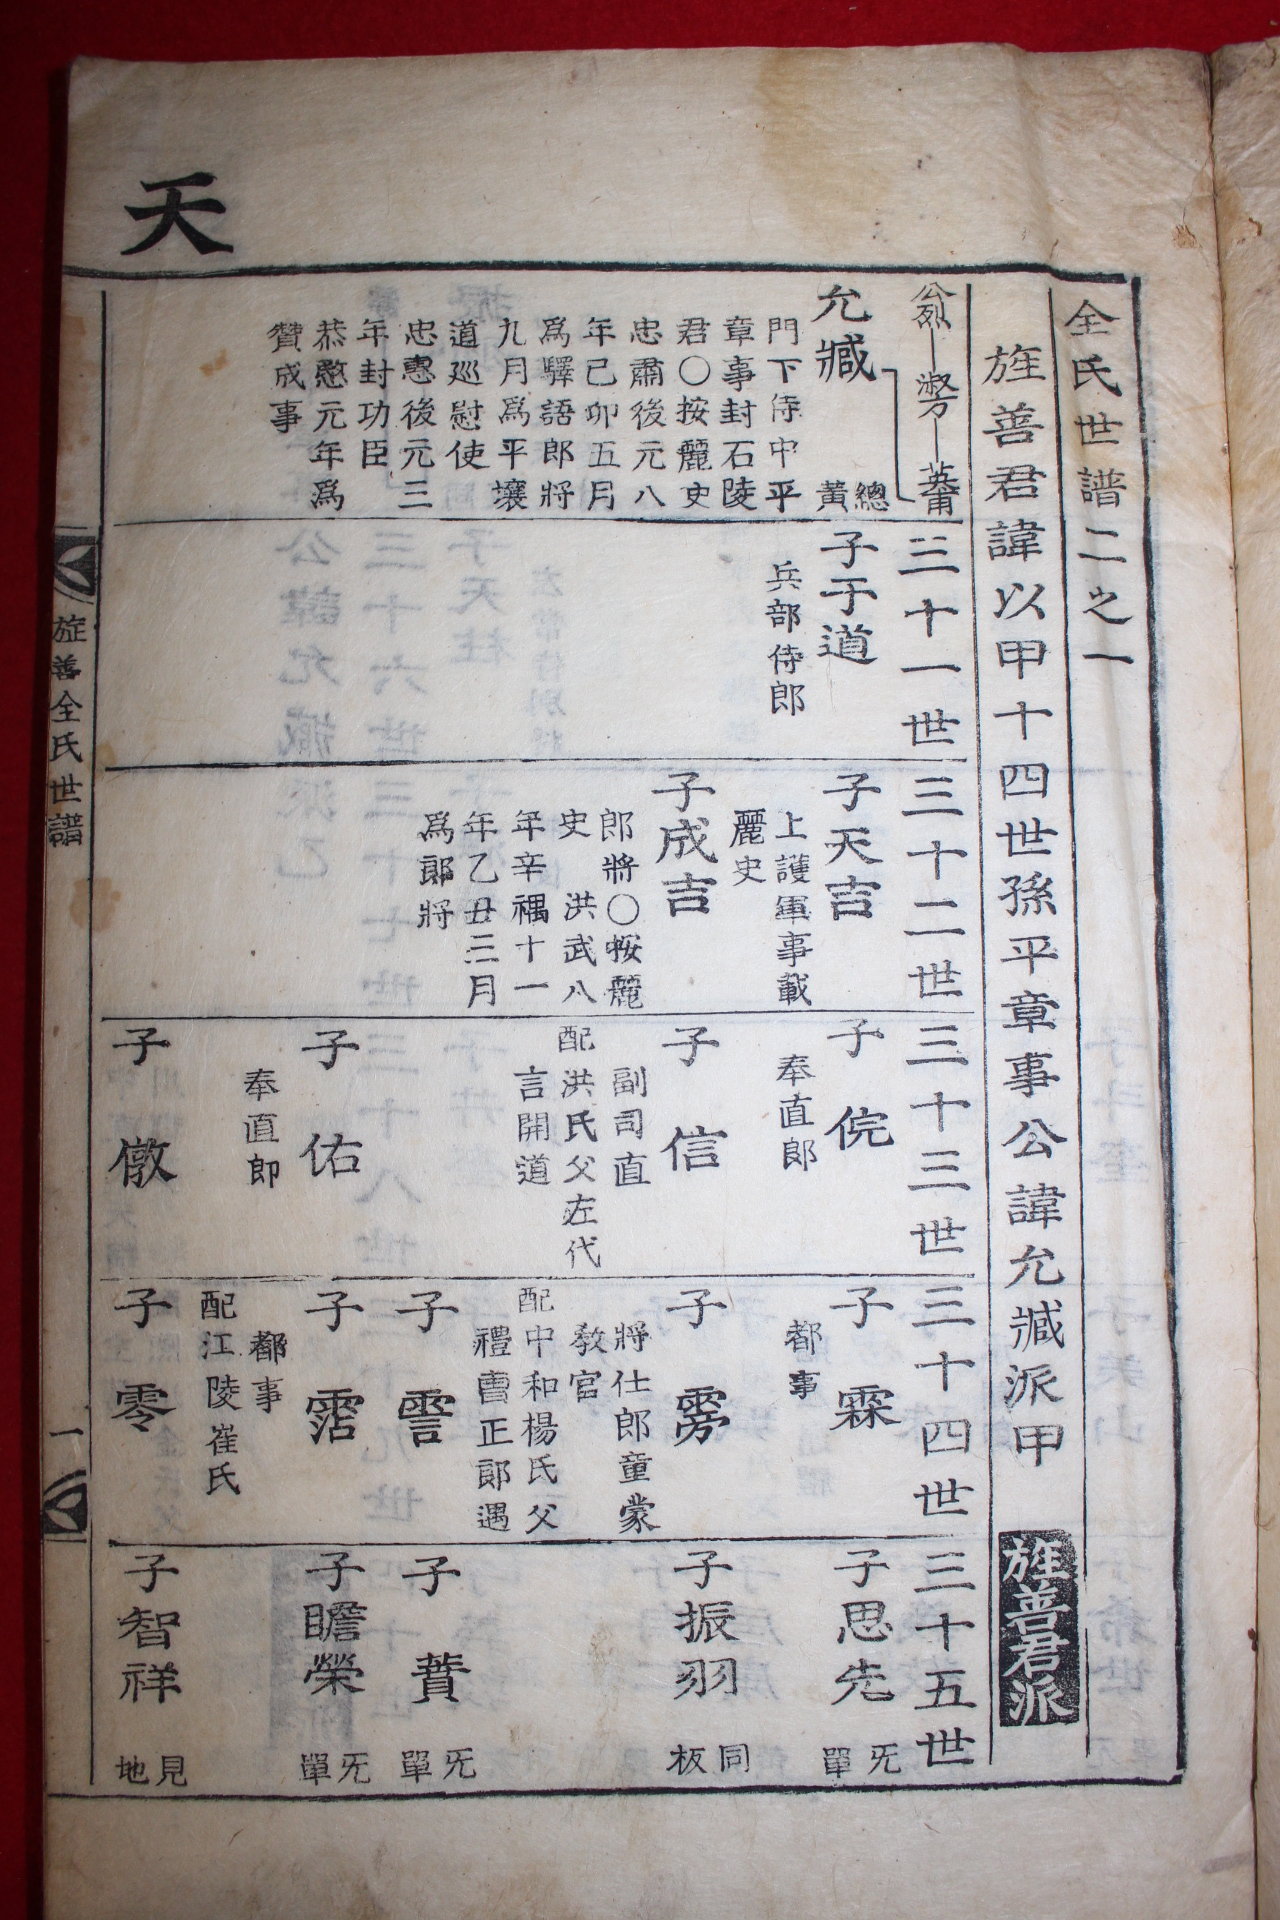 天
全氏世譜二之一
旌善君諱以甲十四世孫平章事公諱允臧派甲
旌善君派
允臧
總
黃
門下侍中平
章事封石陵
君○按麗史
忠肅後元八
年己卯五月
爲驛語郎將
九月爲平壤
道巡慰使
忠惠後元三
年封功臣
恭愍元年爲
贊成事
三十一世
子于道
兵部侍郎
三十二世
子天吉
上護軍事載
麗史
子成吉
郎將○按麗
史 洪武八
年辛禑十一
年乙丑三月
爲郎將
三十三世
子 俒
奉直郎
子 信
副司直
配洪氏父左代
言開道
子 佑
奉直郎
子 儆
三十四世
子 霖
都事
子 雱
將仕郎童蒙
教官
配中和楊氏父
禮曹正郎遇
子
子 霑
都事
配江陵崔氏
子 零
三十五世
子思先
旡
單
子振羽
同
板
子 蕡
旡
單
子瞻榮
旡
單
子智祥
見
地
旌善全氏世譜
一